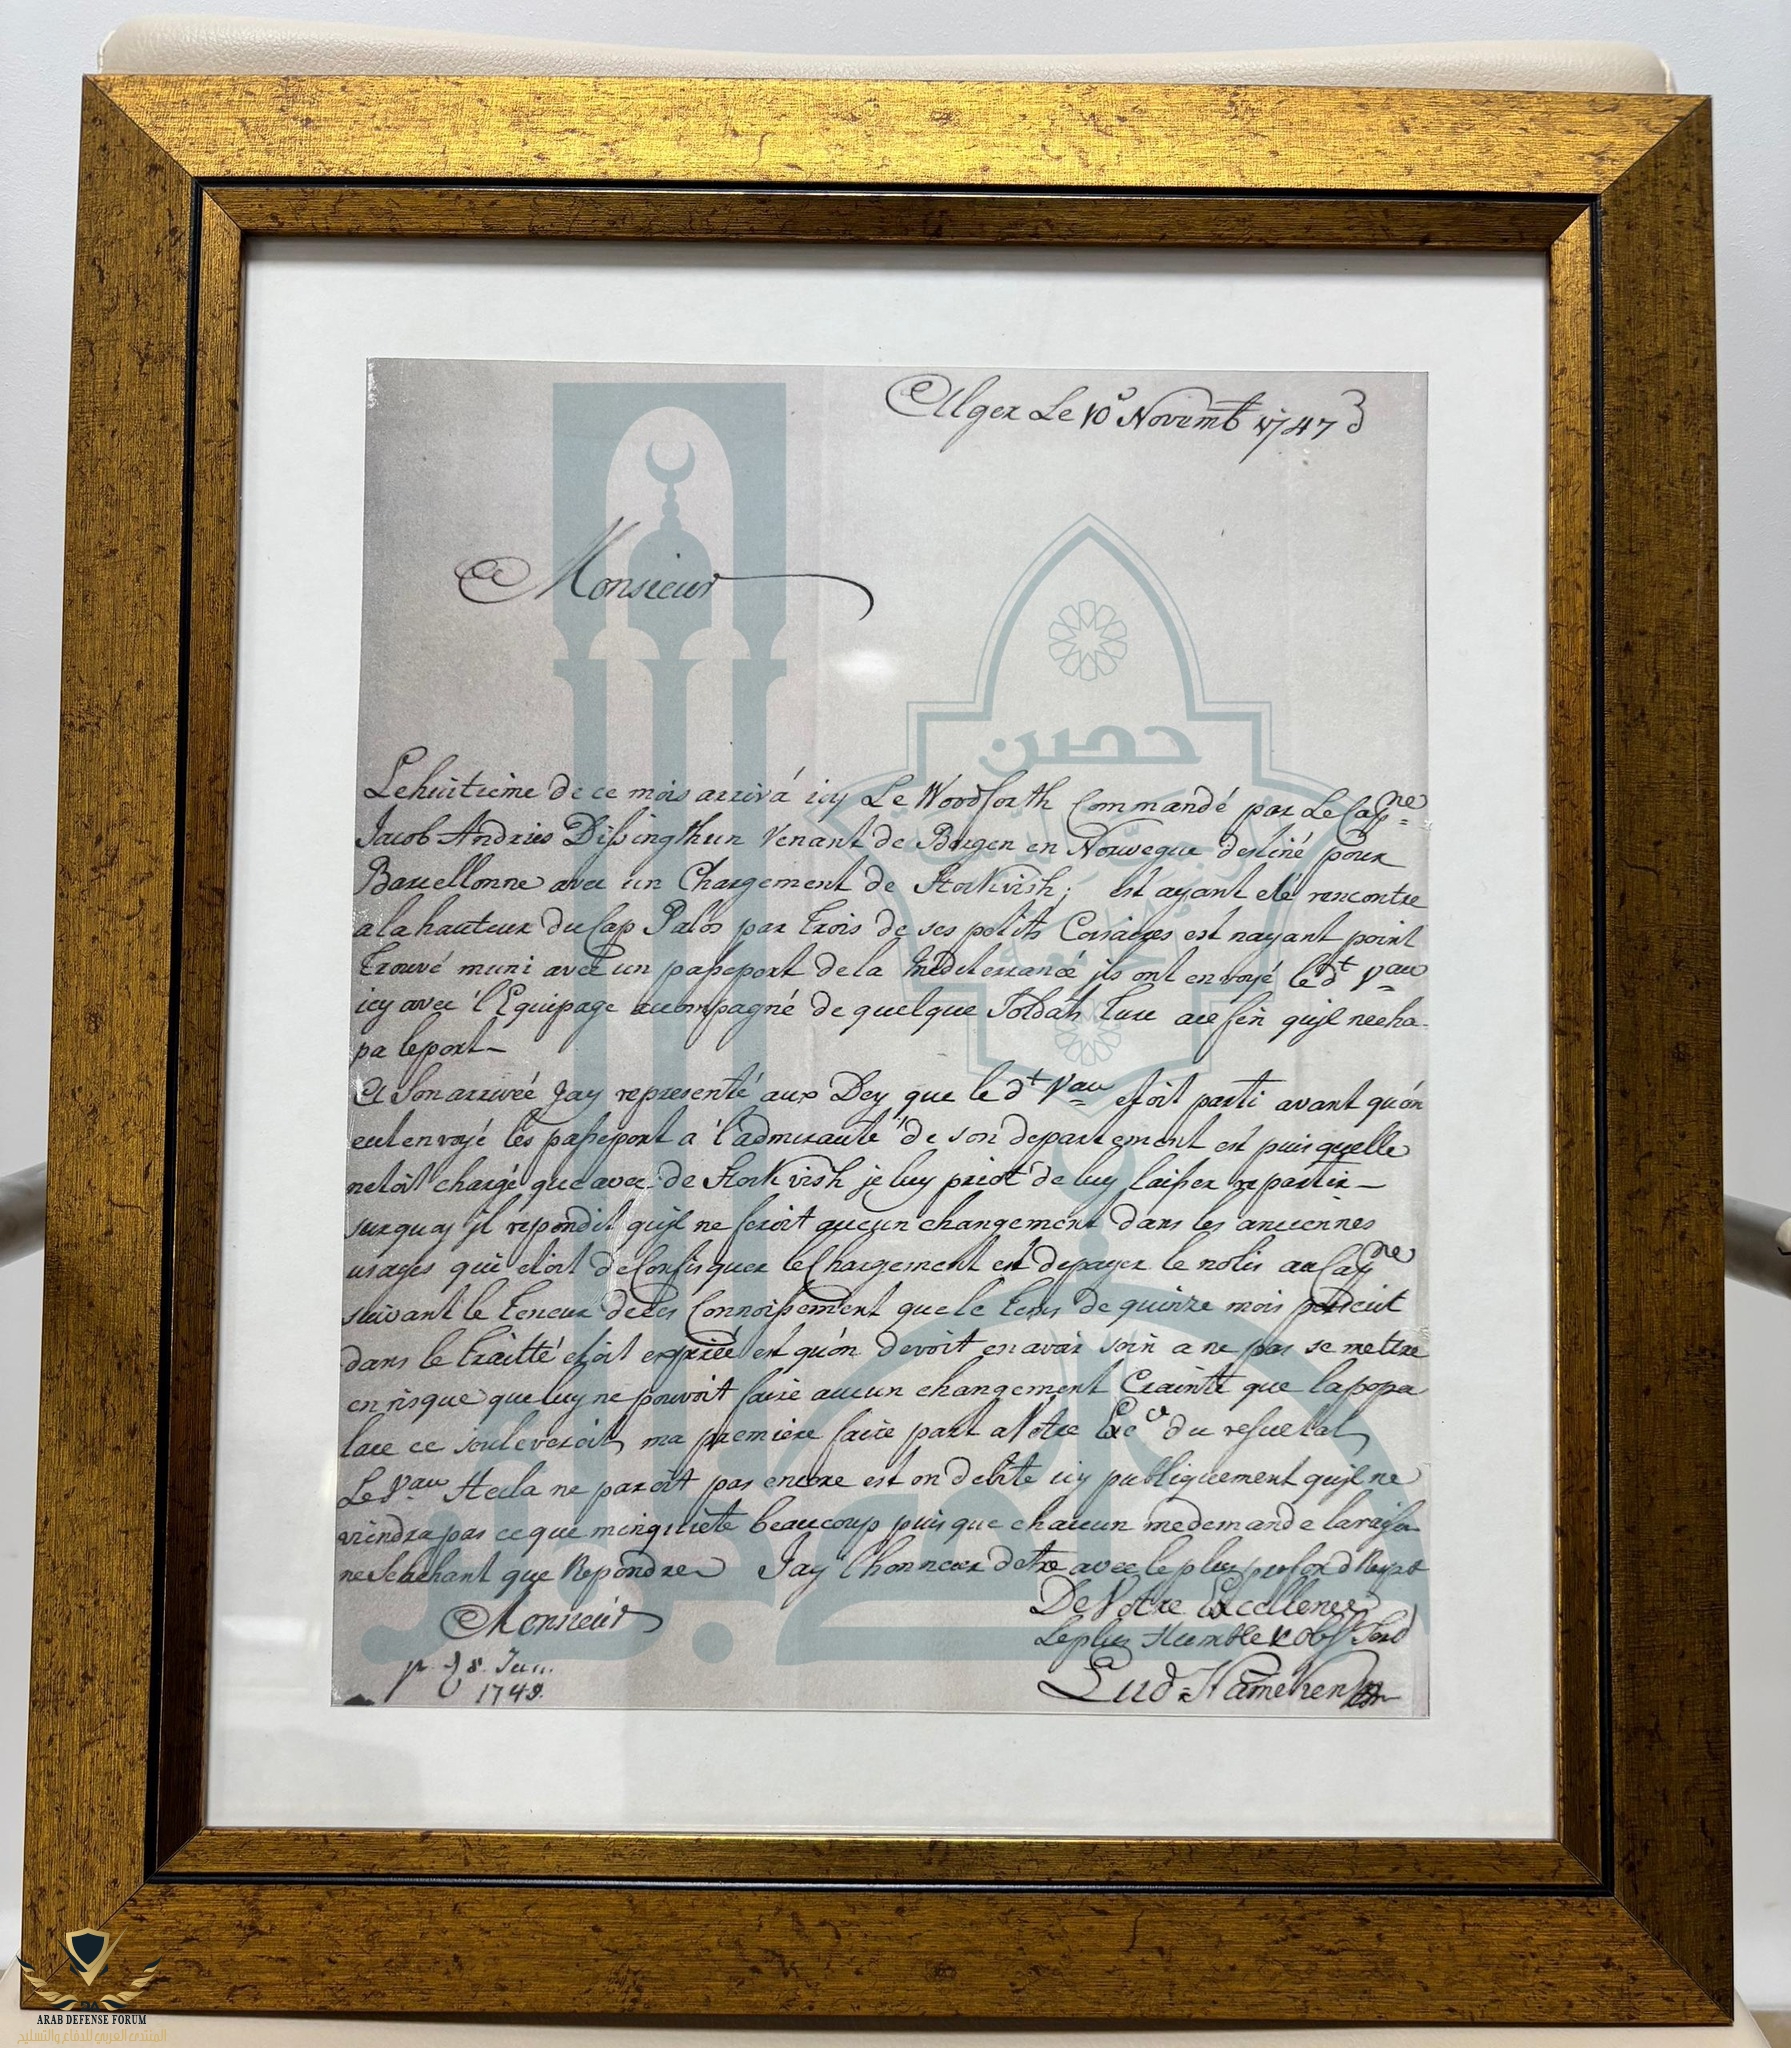 Alger Le 10 Novemb 1747
Monsieur
Le huitieme de ce mois arriva icy Le Woodforth Commandé par Le Capne
Jacob Andries venant de Bergen en Norwegue destiné pour
Barcellonne avec un Chargement de Stokvish; est ayant eté rencontre
a la hauteur du Cap Palos par trois de ses petits Corsaires est nayant point
trouvé muni avec un passeport de la Mediterranée ils ont envoyé le dt Vau
icy avec l'Equipage acompagné de quelque Soldats Turc
pa le port
A son arrivée Jay representé aux Dey que le dt Vau etoit parti avant qu'on
eut envoyé les passeport a l'admirauté de son departement est puis quelle
netoit chargé que avec de Stokvish je luy priot de luy laisser repartir
surquoy il repondit quil ne feroit aucun changement dans les anciennes
usages qui etoit de Confisquer le Chargement est de payer le nolis au Capne
suivant le teneur de les Connoissement que le tems de quinze mois
dans le traitté etoit expirée est qu'on devoit en avair soin a ne pas se mettre
en risque que luy ne pouvoit faire aucun changement Crainte que la popu
lace ce souleveroit, ma premiere faire part a Votre Exce du resultat,
Le Vau Hecla ne paroit pas encore est on debite icy publiquement quil ne
viendra pas ce que minquiete beaucoup puis que chacun me demande la raison
ne Sachant que Repondre Jay l'honneur detre avec le plus profond
De Votre Excellence
Le plus Humble
Monsieur
8. Jan.
1748.
Lud: Hameken
حصن
ARAB DEFENSE FORUM
المنتدى العربي للدفاع والتسليح